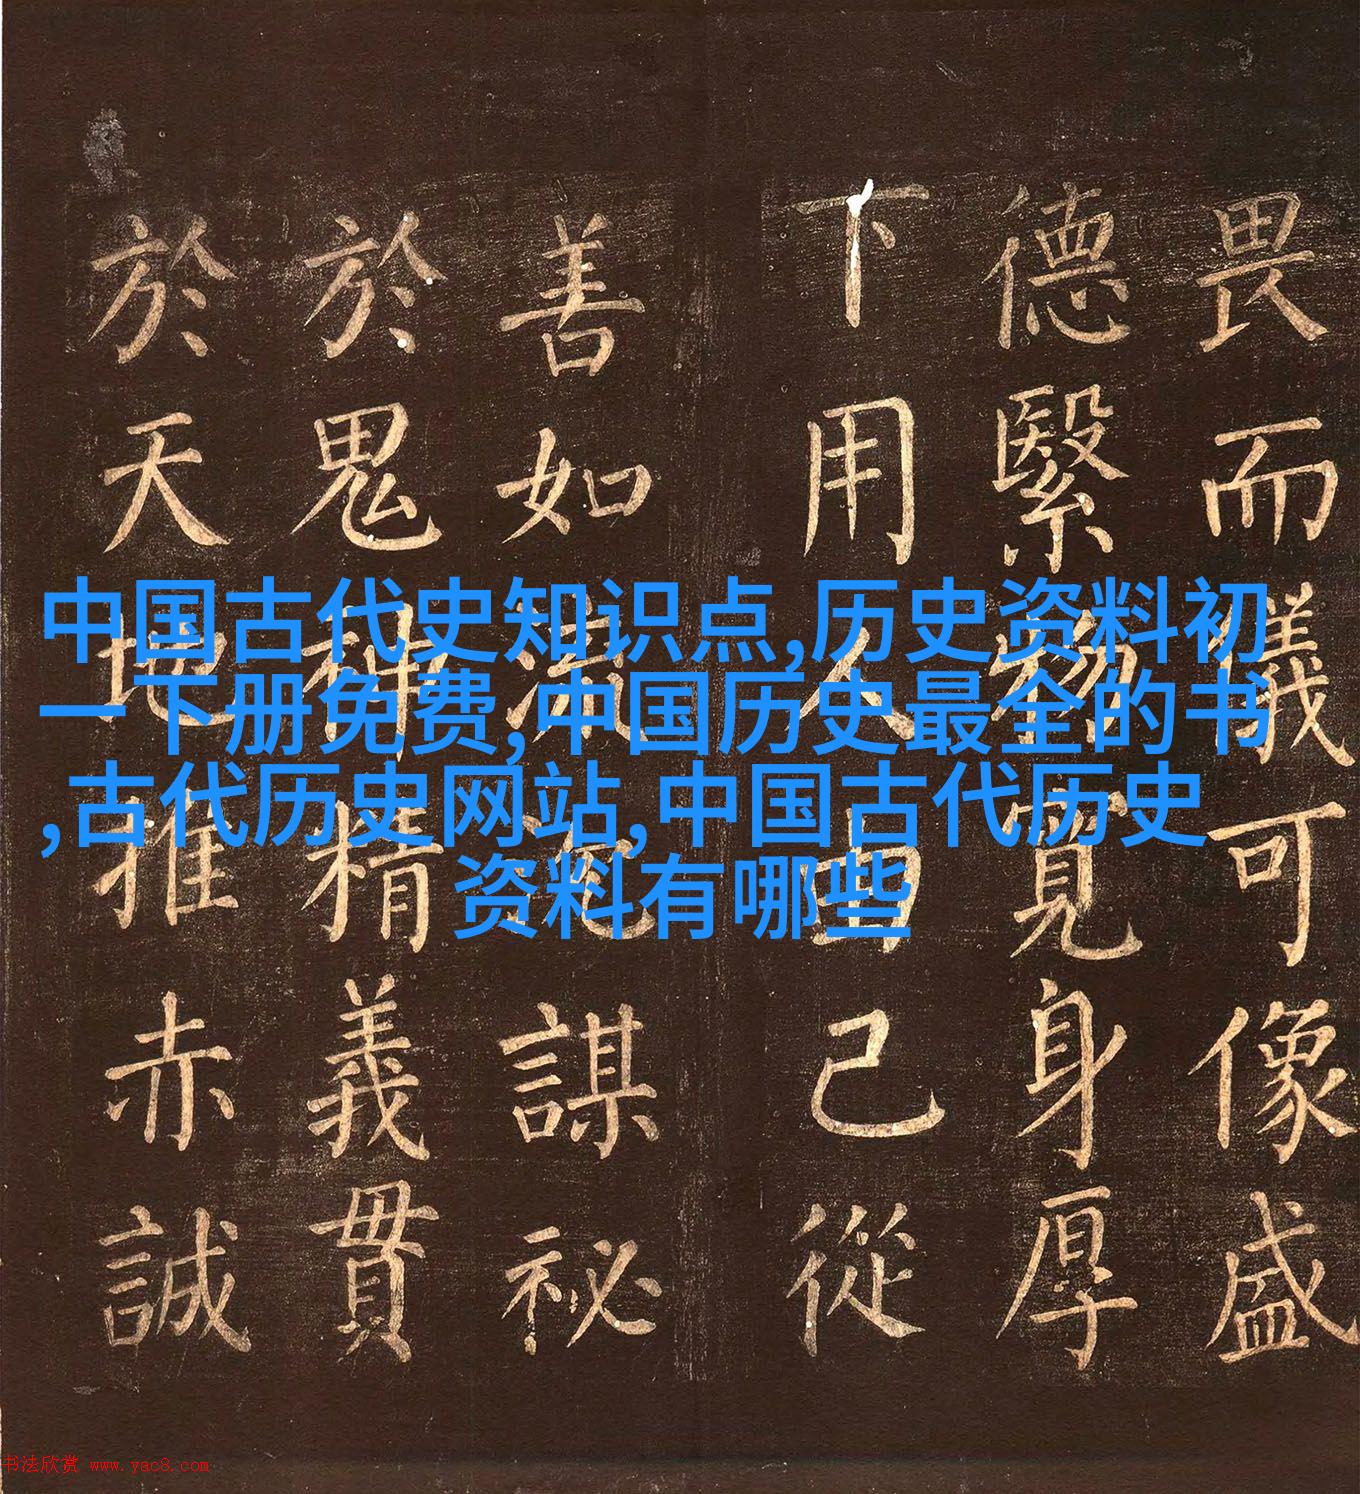 畏而儀可像盛
德繄物寬身厚
下用人由己從
善如流謀祕
於鬼神精義貫
於天地推赤誠
中国古代史知识点,历史资料初
一下册免费,中国历史最全的书
,古代历史网站,中国古代历史
资料有哪些
书法欣赏 www.yac8.com